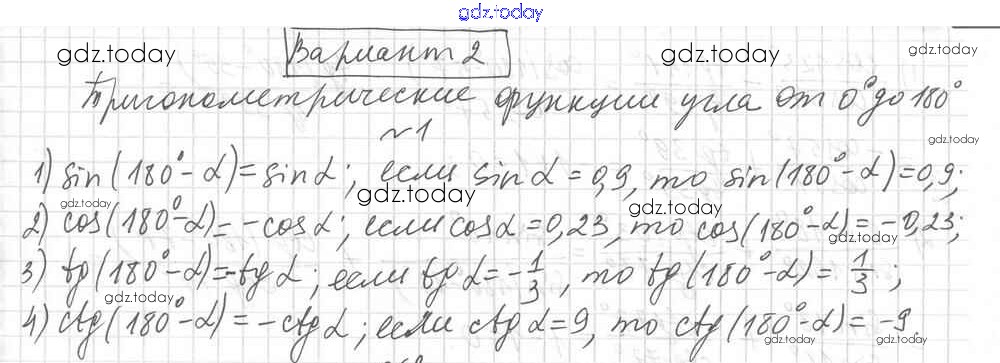 gdz.today
Вариант 2
gdz.today gdz.today gdz.today
Тригонометрические функции угла от 0° до 180°
№1
gdz.today
1) sin(180°-α)=sinα; если sinα=0,9, то sin(180°-α)=0,9;
gdz.today gdz.today gdz.today
2) cos(180°-α)=-cosα; если cosα=0,23, то cos(180°-α)=-0,23;
gdz.today
3) tg(180°-α)=-tgα; если tgα=-1/3, то tg(180°-α)=1/3;
gdz.today
4) ctg(180°-α)=-ctgα; если ctgα=9, то ctg(180°-α)=-9.
gdz.today gdz.today